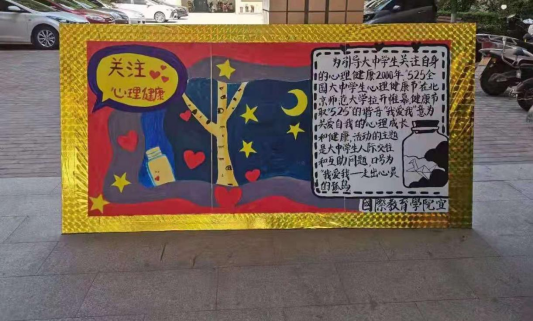 关注
心理健康
为引导大中学生关注自身
的心理健康2006年“525全
国大中学生心理健康节在北
京师范大学拉开帷幕健康节
取“5.25”的谐音“我爱我”意为
关爱自我的心理成长
和健康,活动的主题
是大中学生人际交往
和互助问题,口号为
“我爱我—走出心灵
的孤岛
国際教育學院宣